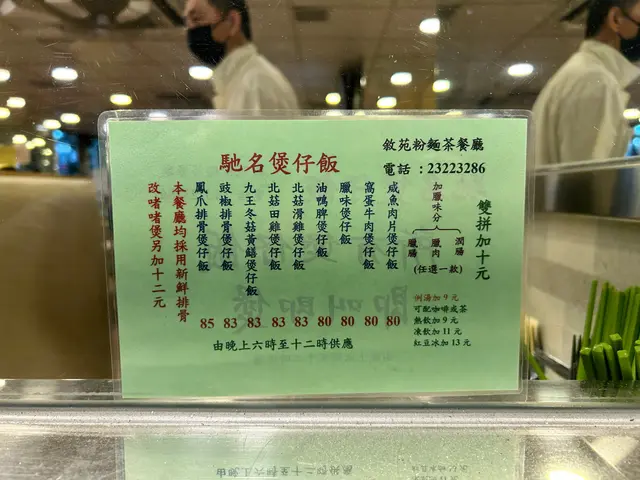 敘苑粉麵茶餐廳
電話：23223286
馳名煲仔飯
雙拼加十元
加臘味分
潤腸
臘肉
臘腸
(任選一款)
咸魚肉片煲仔飯 80
窩蛋牛肉煲仔飯 80
臘味煲仔飯 80
油鴨脾煲仔飯 80
北菇滑雞煲仔飯 83
北菇田雞煲仔飯 83
九王冬菇黃鱔煲仔飯 83
豉椒排骨煲仔飯 83
鳳爪排骨煲仔飯 85
本餐廳均採用新鮮排骨
改啫啫煲另加十二元
例湯加 9 元
可配咖啡或茶
熱飲加 9 元
凍飲加 11 元
紅豆冰加 13 元
由晚上六時至十二時供應